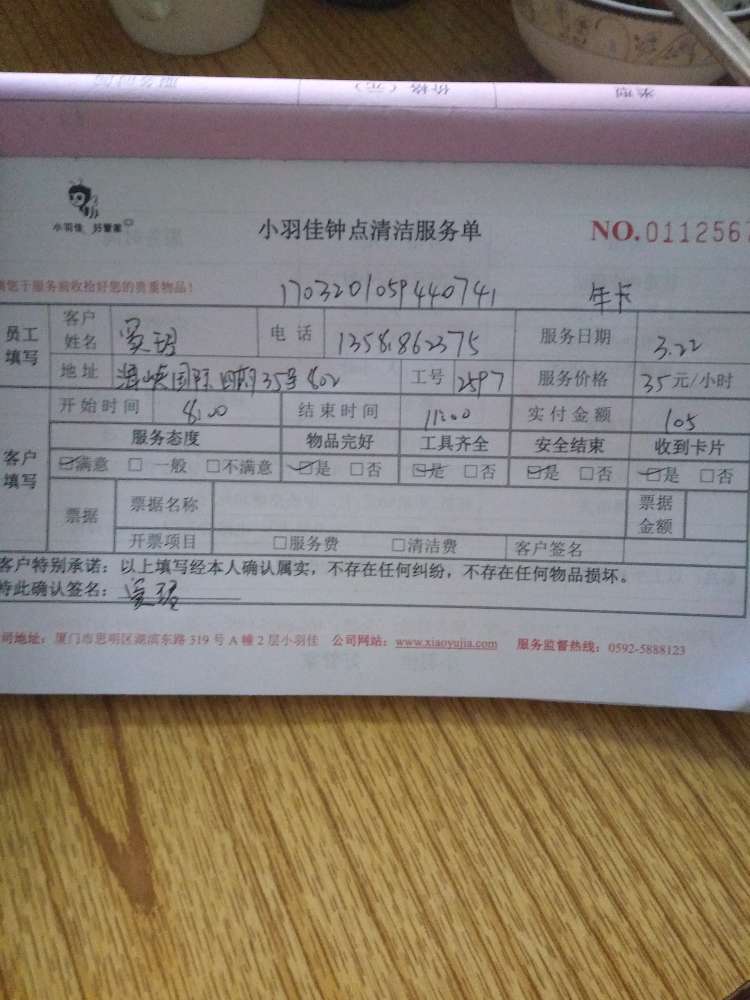 服务时间 价格(元) 类型
小羽佳 好管家
小羽佳钟点清洁服务单
NO.0112567
您于服务前收检好您的贵重物品!
1703201059440741 年卡
员工填写 客户姓名 电话 13581862375 服务日期 3.22
地址 海峡国际 35号802 工号 2597 服务价格 35元/小时
客户填写 开始时间 8:00 结束时间 11:00 实付金额 105
服务态度 物品完好 工具齐全 安全结束 收到卡片
☑满意 □一般 □不满意 ☑是 □否 ☑是 □否 ☑是 □否 ☑是 □否
票据 票据名称 票据金额
开票项目 □服务费 □清洁费 客户签名
客户特别承诺:以上填写经本人确认属实,不存在任何纠纷,不存在任何物品损坏。
特此确认签名:
司地址:厦门市思明区湖滨东路 319 号 A 幢 2 层小羽佳 公司网站:www.xiaoyujia.com 服务监督热线:0592-5888123